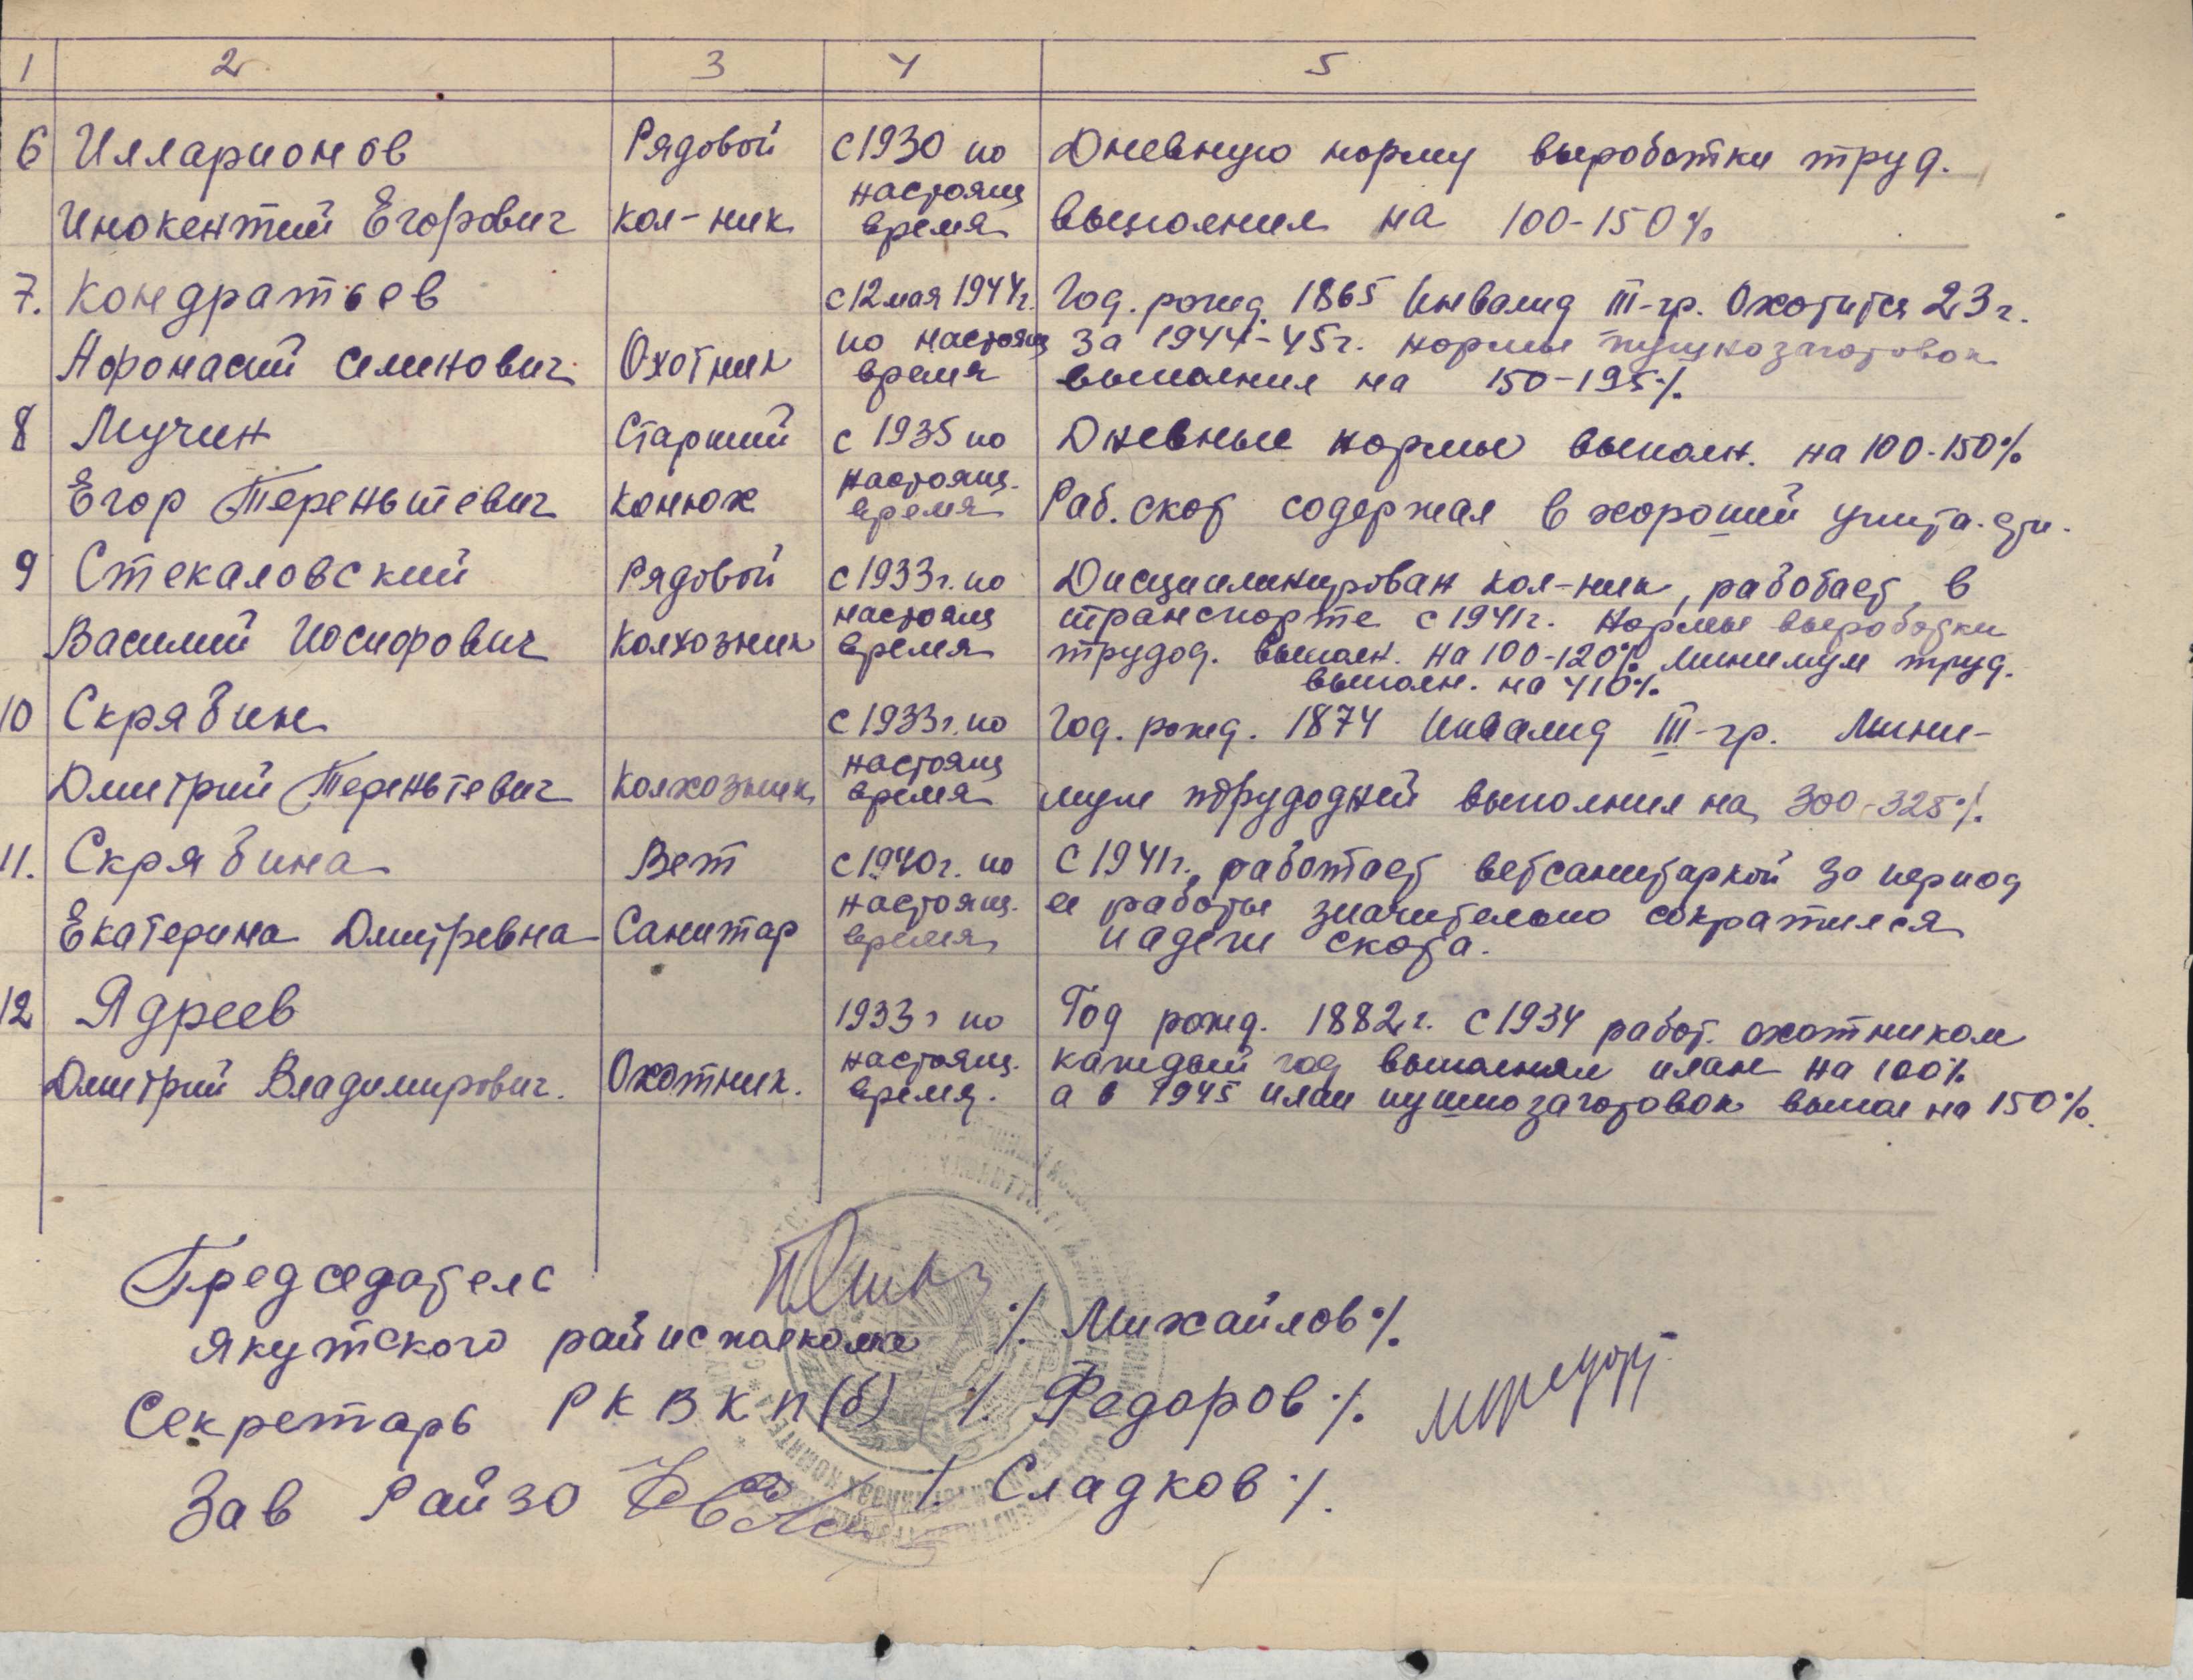 1 2 3 4 5
6 Илларионов Рядовой с 1930 по Дневную норму выработки труд.
настоящ
Инокентий Егорович кол-ник время выполнил на 100-150%
7. Кондратьев с 12 мая 1944г. Год. рожд. 1865 Инвалид III-гр. Охотится 23г.
по настоящ за 1944-45г. нормы пушнозаготовок
Афонасий Семенович Охотник время выполнил на 150-195%
8 Мучин Старший с 1935 по Дневные нормы выполн. на 100-150%
настоящ.
Егор Терентьевич Конюх время Раб. скот содержал в хороший упита.сти.
9 Стекаловский Рядовой с 1933г. по Дисциплинирован кол-ник, работает в
настоящ транспорте с 1941г. Нормы выработки
Василий Иосифович Колхозник время трудод. выполн. на 100-120% минимум труд.
выполн. на 410%
10 Скрябин с 1933г. по Год. рожд. 1874 Инвалид III-гр. Мини-
настоящ
Дмитрий Терентьевич Колхозник время мум трудодней выполнил на 300-325%
11. Скрябина Вет с 1940г. по С 1941г. работает ветсанитаркой за период
настоящ. ее работы значительно сократился
Екатерина Дмитревна Санитар время падеж скота.
12 Ядреев 1933г по Год рожд. 1882г. с 1934 работ. охотником
настоящ. каждый год выполнял план на 100%
Дмитрий Владимирович. Охотник. время. а в 1945 план пушнозаготовок выпол на 150%.
Председатель
Якутского райисполкома /. Михайлов /.
Секретарь РК ВКП(б) /. Федоров /.
Зав Райзо /. Сладков /.